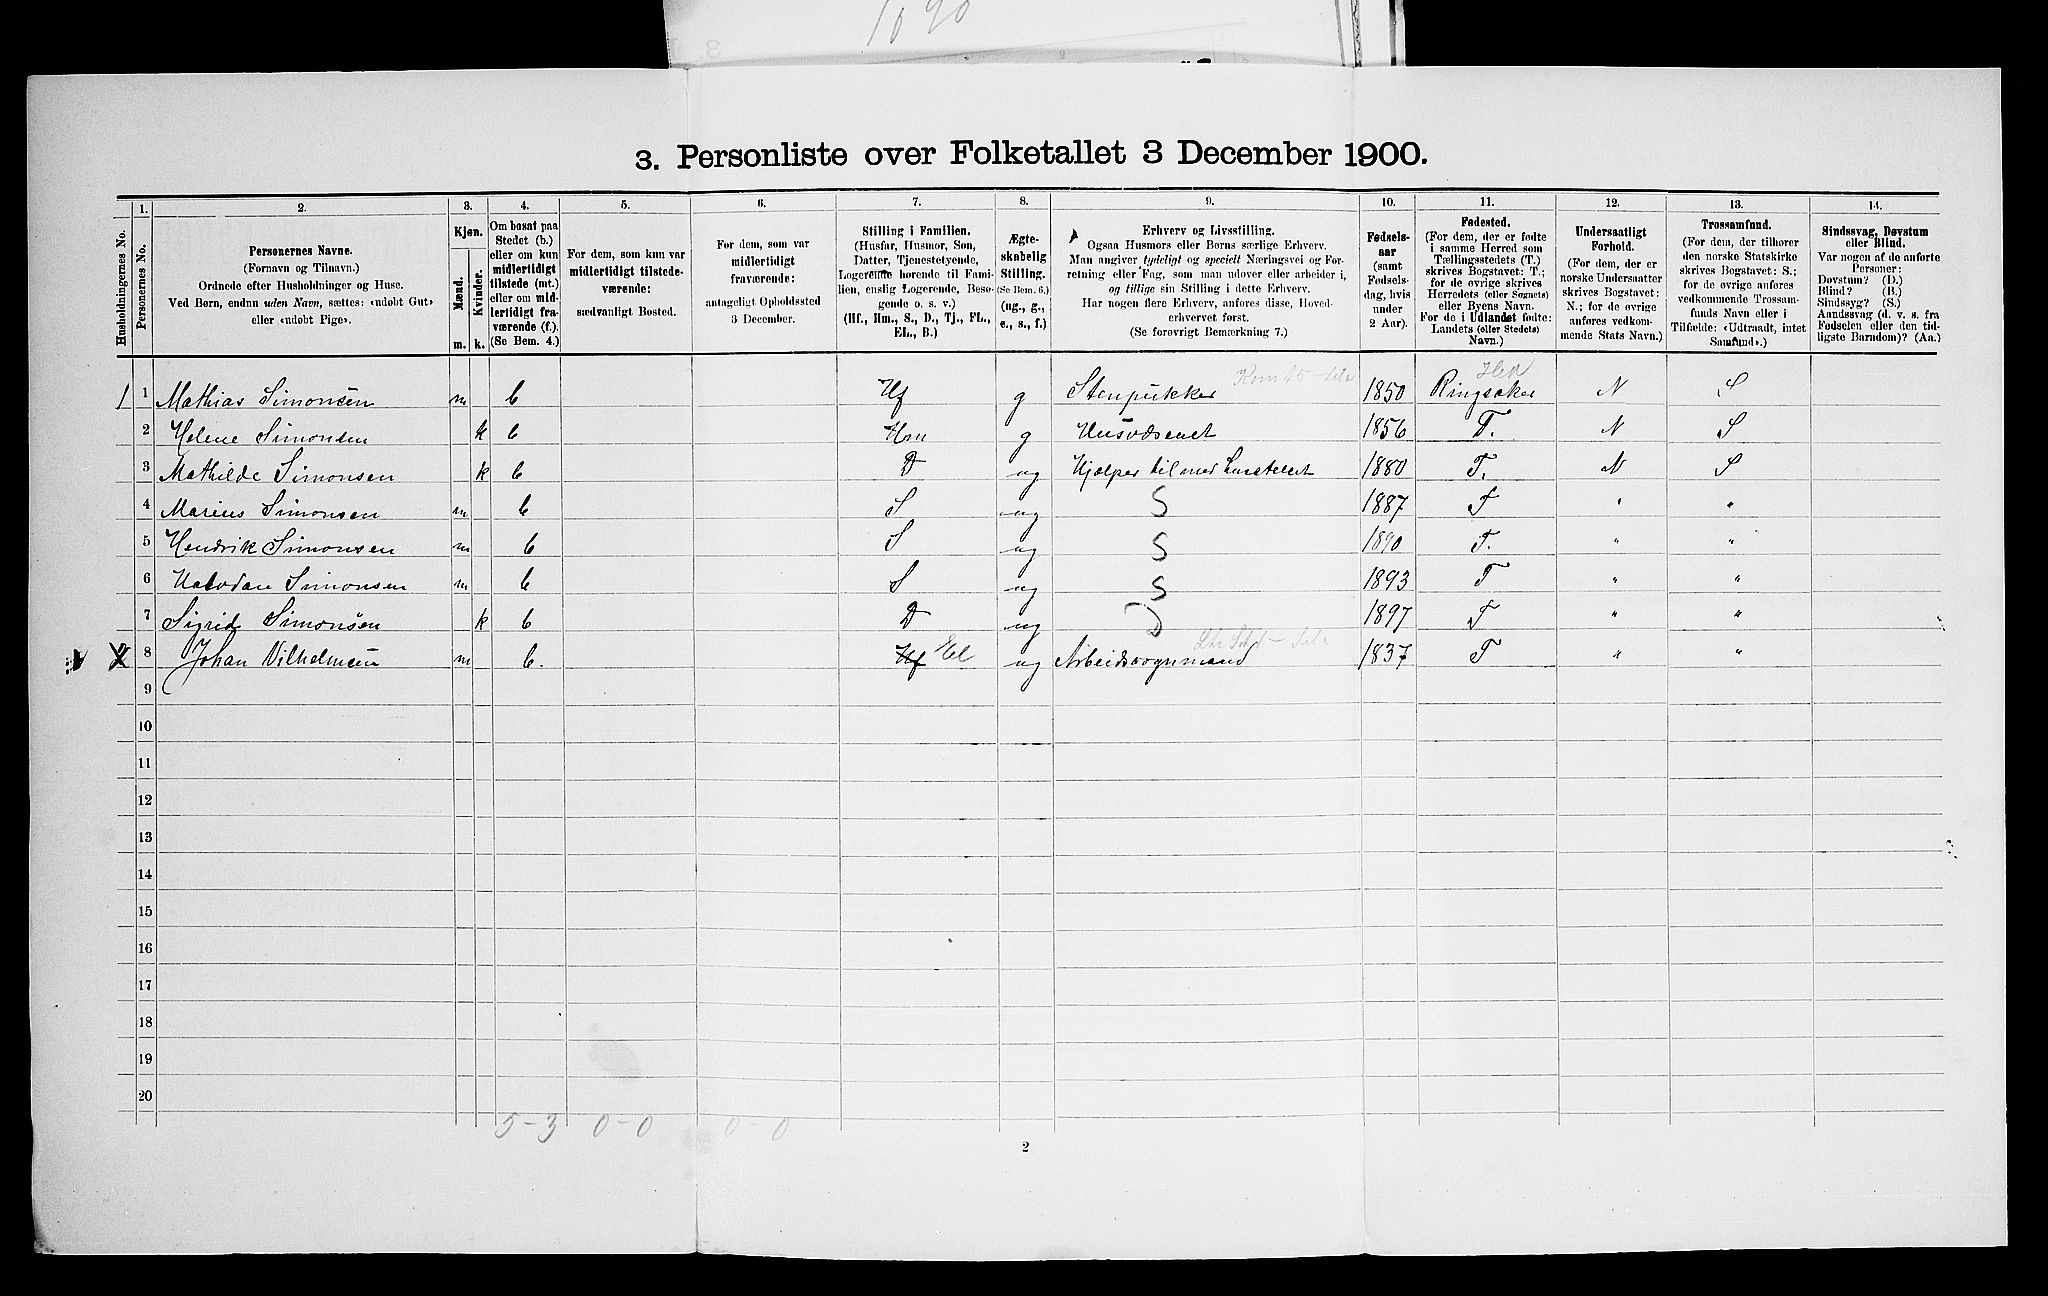 1690
3. Personliste over Folketallet 3 December 1900.
Husholdningernes No.
1.
Personernes No.
2.
Personernes Navne.
(Fornavn og Tilnavn.)
Ordnede efter Husholdninger og Huse.
Ved Børn, endnu uden Navn, sættes: «udøbt Gut»
eller «udøbt Pige».
3.
Kjøn.
Mænd.
Kvinder.
m. k.
4.
Om bosat paa
Stedet (b.)
eller om kun
midlertidigt
tilstede (mt.)
eller om mid-
lertidigt fra-
værende (f.).
(Se Bem. 4.)
5.
For dem, som kun var
midlertidigt tilstede-
værende:
sædvanligt Bosted.
6.
For dem, som var
midlertidigt
fraværende:
antageligt Opholdssted
3 December.
7.
Stilling i Familien.
(Husfar, Husmor, Søn,
Datter, Tjenestetyende,
Logerende hørende til Fami-
lien, enslig Logerende, Besø-
gende o. s. v.)
(Hf., Hm., S., D., Tj., FL.,
EL., B.)
8.
Ægte-
skabelig
Stilling.
(Se Bem. 6.)
(ug., g.,
e., s., f.)
9.
Erhverv og Livsstilling.
Ogsaa Husmors eller Børns særlige Erhverv.
Man angiver tydeligt og specielt Næringsvei og For-
retning eller Fag, som man udøver eller arbeider i,
og tillige sin Stilling i dette Erhverv.
Har nogen flere Erhverv, anføres disse, Hoved-
erhvervet først.
(Se forøvrigt Bemærkning 7.)
10.
Fødsels-
aar
(samt
Fødsels-
dag, hvis
under
2 Aar).
11.
Fødested.
(For dem, der er fødte
i samme Herred som
Tællingsstedet (T.)
skrives Bogstavet: T.;
for de øvrige skrives
Herredets (eller Sognets)
eller Byens Navn.
For de i Udlandet fødte:
Landets (eller Stedets)
Navn.)
12.
Undersaatligt
Forhold.
(For dem, der er
norske Undersaatter
skrives Bogstavet:
N.; for de øvrige
anføres vedkom-
mende Stats Navn.)
13.
Trossamfund.
(For dem, der tilhører
den norske Statskirke
skrives Bogstavet: S.;
for de øvrige anføres
vedkommende Trossam-
funds Navn eller i
Tilfælde: «Udtraadt, intet
Samfund».)
14.
Sindssvag, Døvstum
eller Blind.
Var nogen af de anførte
Personer:
Døvstum? (D.)
Blind? (B.)
Sindssyg? (S.)
Aandssvag (d. v. s. fra
Fødselen eller den tid-
ligste Barndom)? (Aa.)
1 1 Mathias Simonsen m b Hf g Stenpukker 1850 Ringsaker Hed N S
2 Helene Simonsen k b Hm g Husvæsenet 1856 T. N S
3 Mathilde Simonsen k b D ug Hjælper til med husstellet 1880 T. N S
4 Marius Simonsen m b S ug S 1887 T " "
5 Hendrik Simonsen m b S ug S 1890 T. " "
6 Halvdan Simonsen m b S ug S 1893 T " "
7 Sigrid Simonsen k b D ug D 1897 T " "
8 Johan Vilhelmsen m b. Hf El ug Arbeidsvognmand 1837 T " "
9
10
11
12
13
14
15
16
17
18
19
20
5-3 0-0 0-0
2